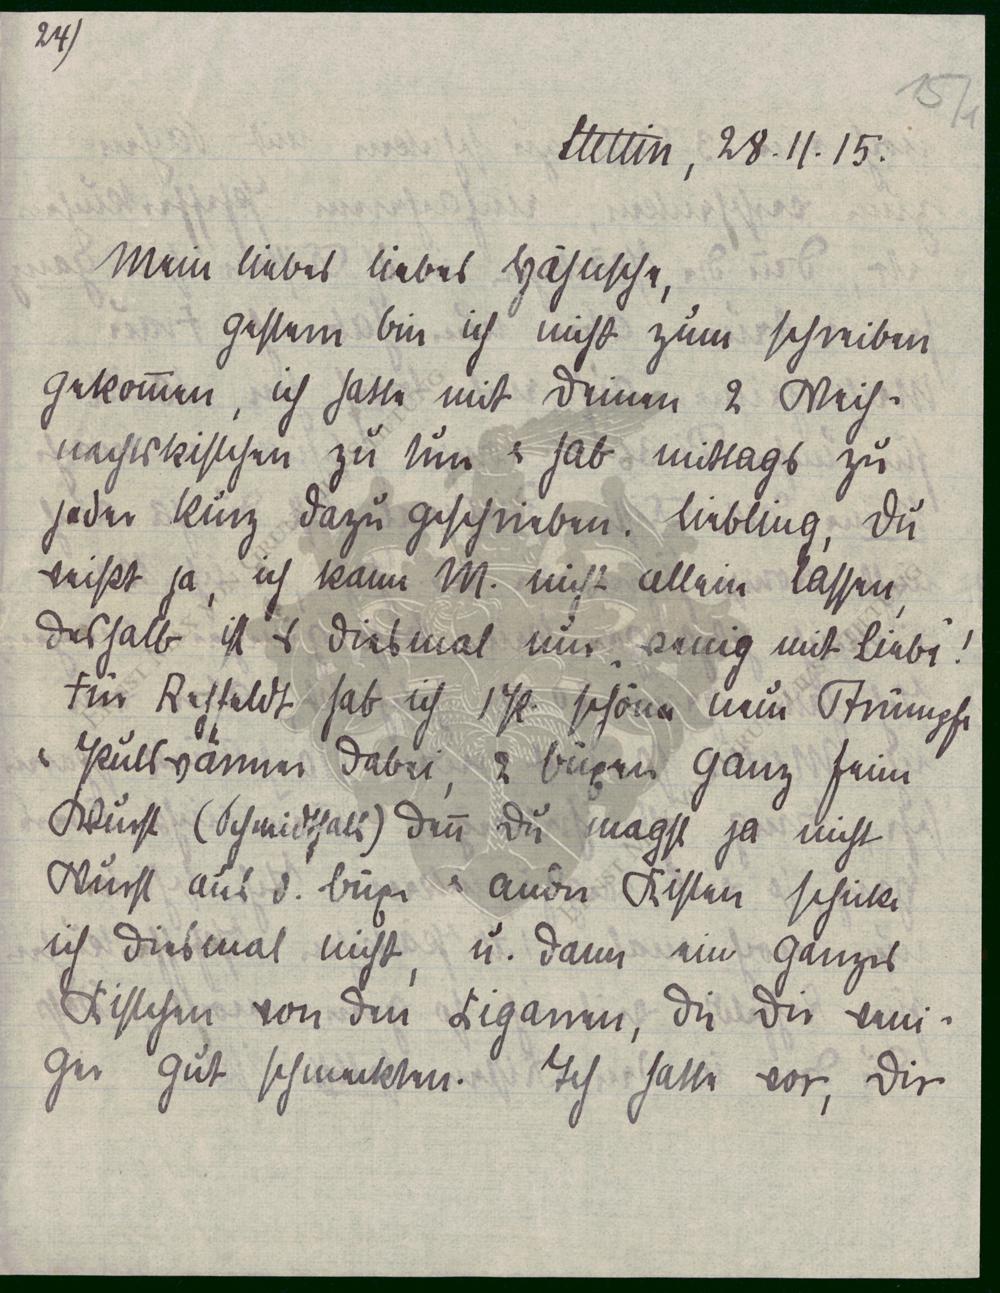 24)
15/1
Stettin, 28.11.15.
Mein liebes liebes
gestern bin ich nicht zum schreiben
gekom̅en, ich hatte mit Deinen 2 Weih-
nachtskistchen zu tun & hab mittags zu
jeder kurz dazu geschrieben. Liebling, Du
weißt ja, ich kann M. nicht allein lassen,
deshalb ist's diesmal nur „wenig mit Liebe“!
Für hab ich 1 P. schöne neue Strümpfe
& Pulswärmer dabei, 2 Büxen ganz feine
Wurst (Schmidthals) den̅ Du magst ja nicht
Wurst aus d. Büxe & andre Kisten schicke
ich diesmal nicht, u. dann ein ganzes
Kistchen von den Zigarren, die Dir weni-
ger gut schmeckten. Ich hatte vor, Dir